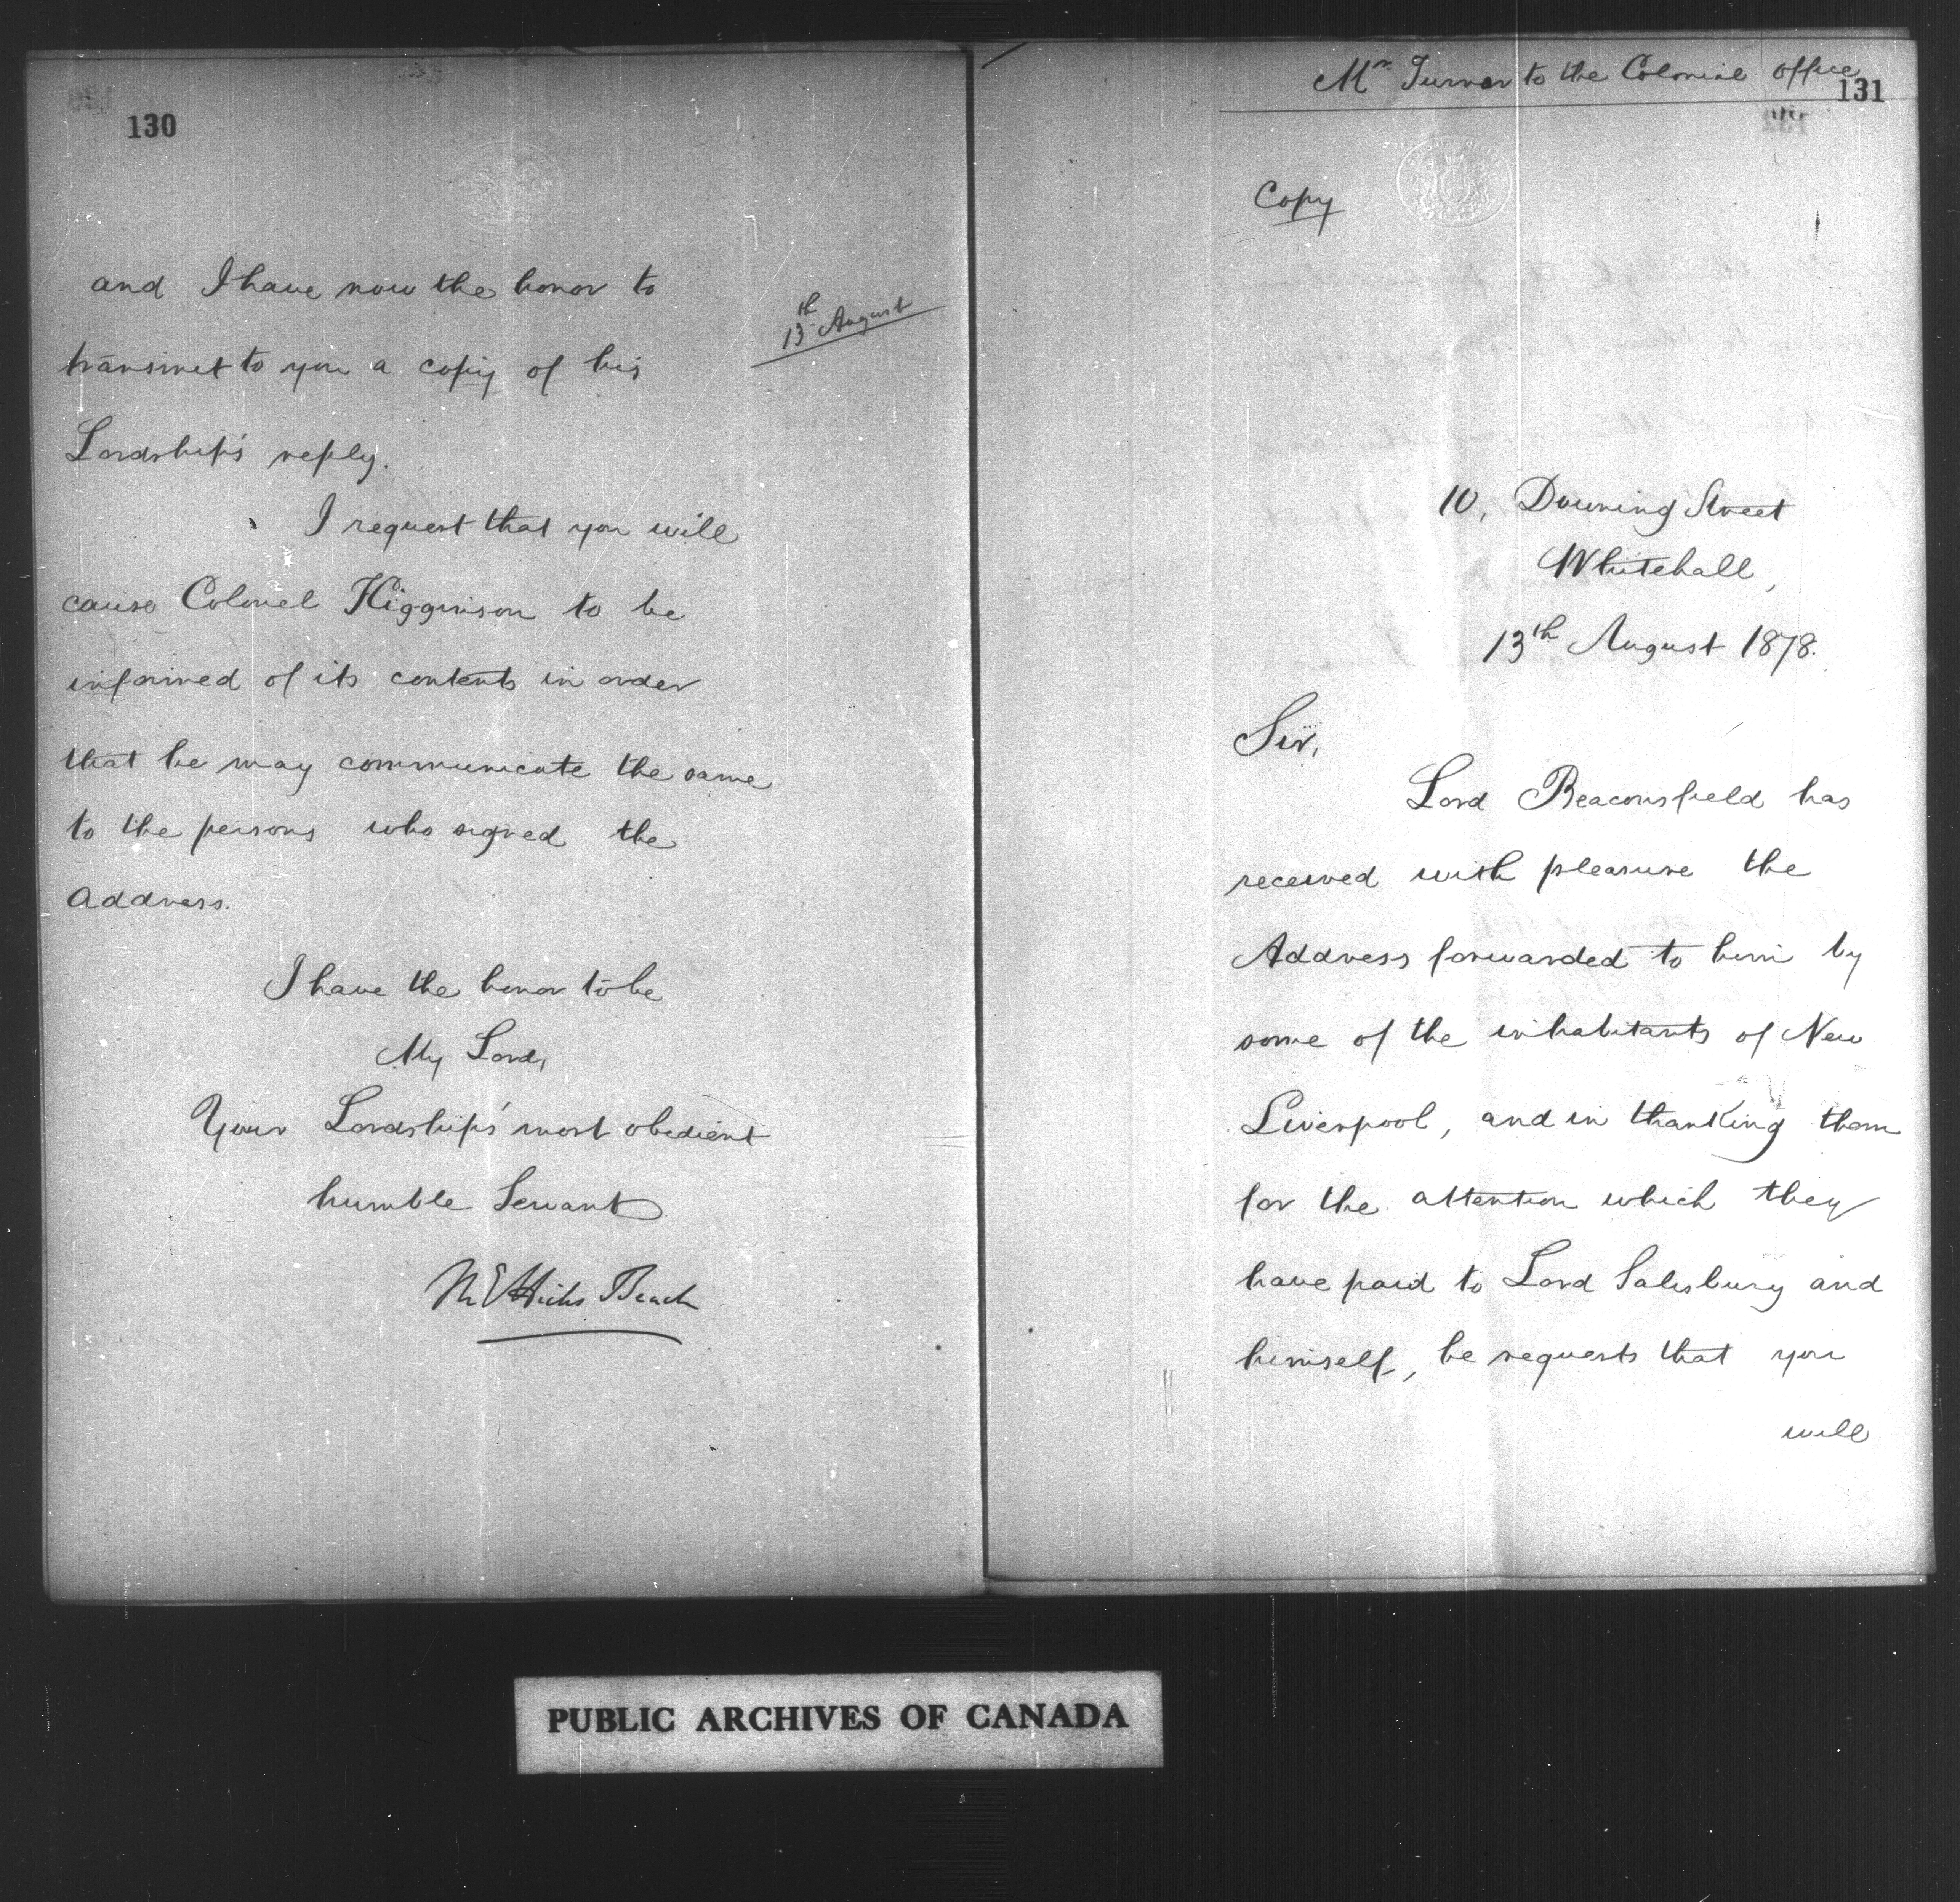 130
and I have now the honor to
13th August
transmit to you a copy of his
Lordship's reply.
I request that you will
cause Colonel Higginson to be
informed of its contents in order
that he may communicate the same
to the persons who signed the
Address.
I have the honor to be
My Lord,
Your Lordship's most obedient
humble Servant
M E Hicks Beach
Mr Turnor to the Colonial Office
131
Copy
10, Downing Street
Whitehall,
13th August 1878.
Sir,
Lord Beaconsfield has
received with pleasure the
Address forwarded to him by
some of the inhabitants of New
Liverpool, and in thanking them
for the attention which they
have paid to Lord Salisbury and
himself, he requests that you
will
PUBLIC ARCHIVES OF CANADA